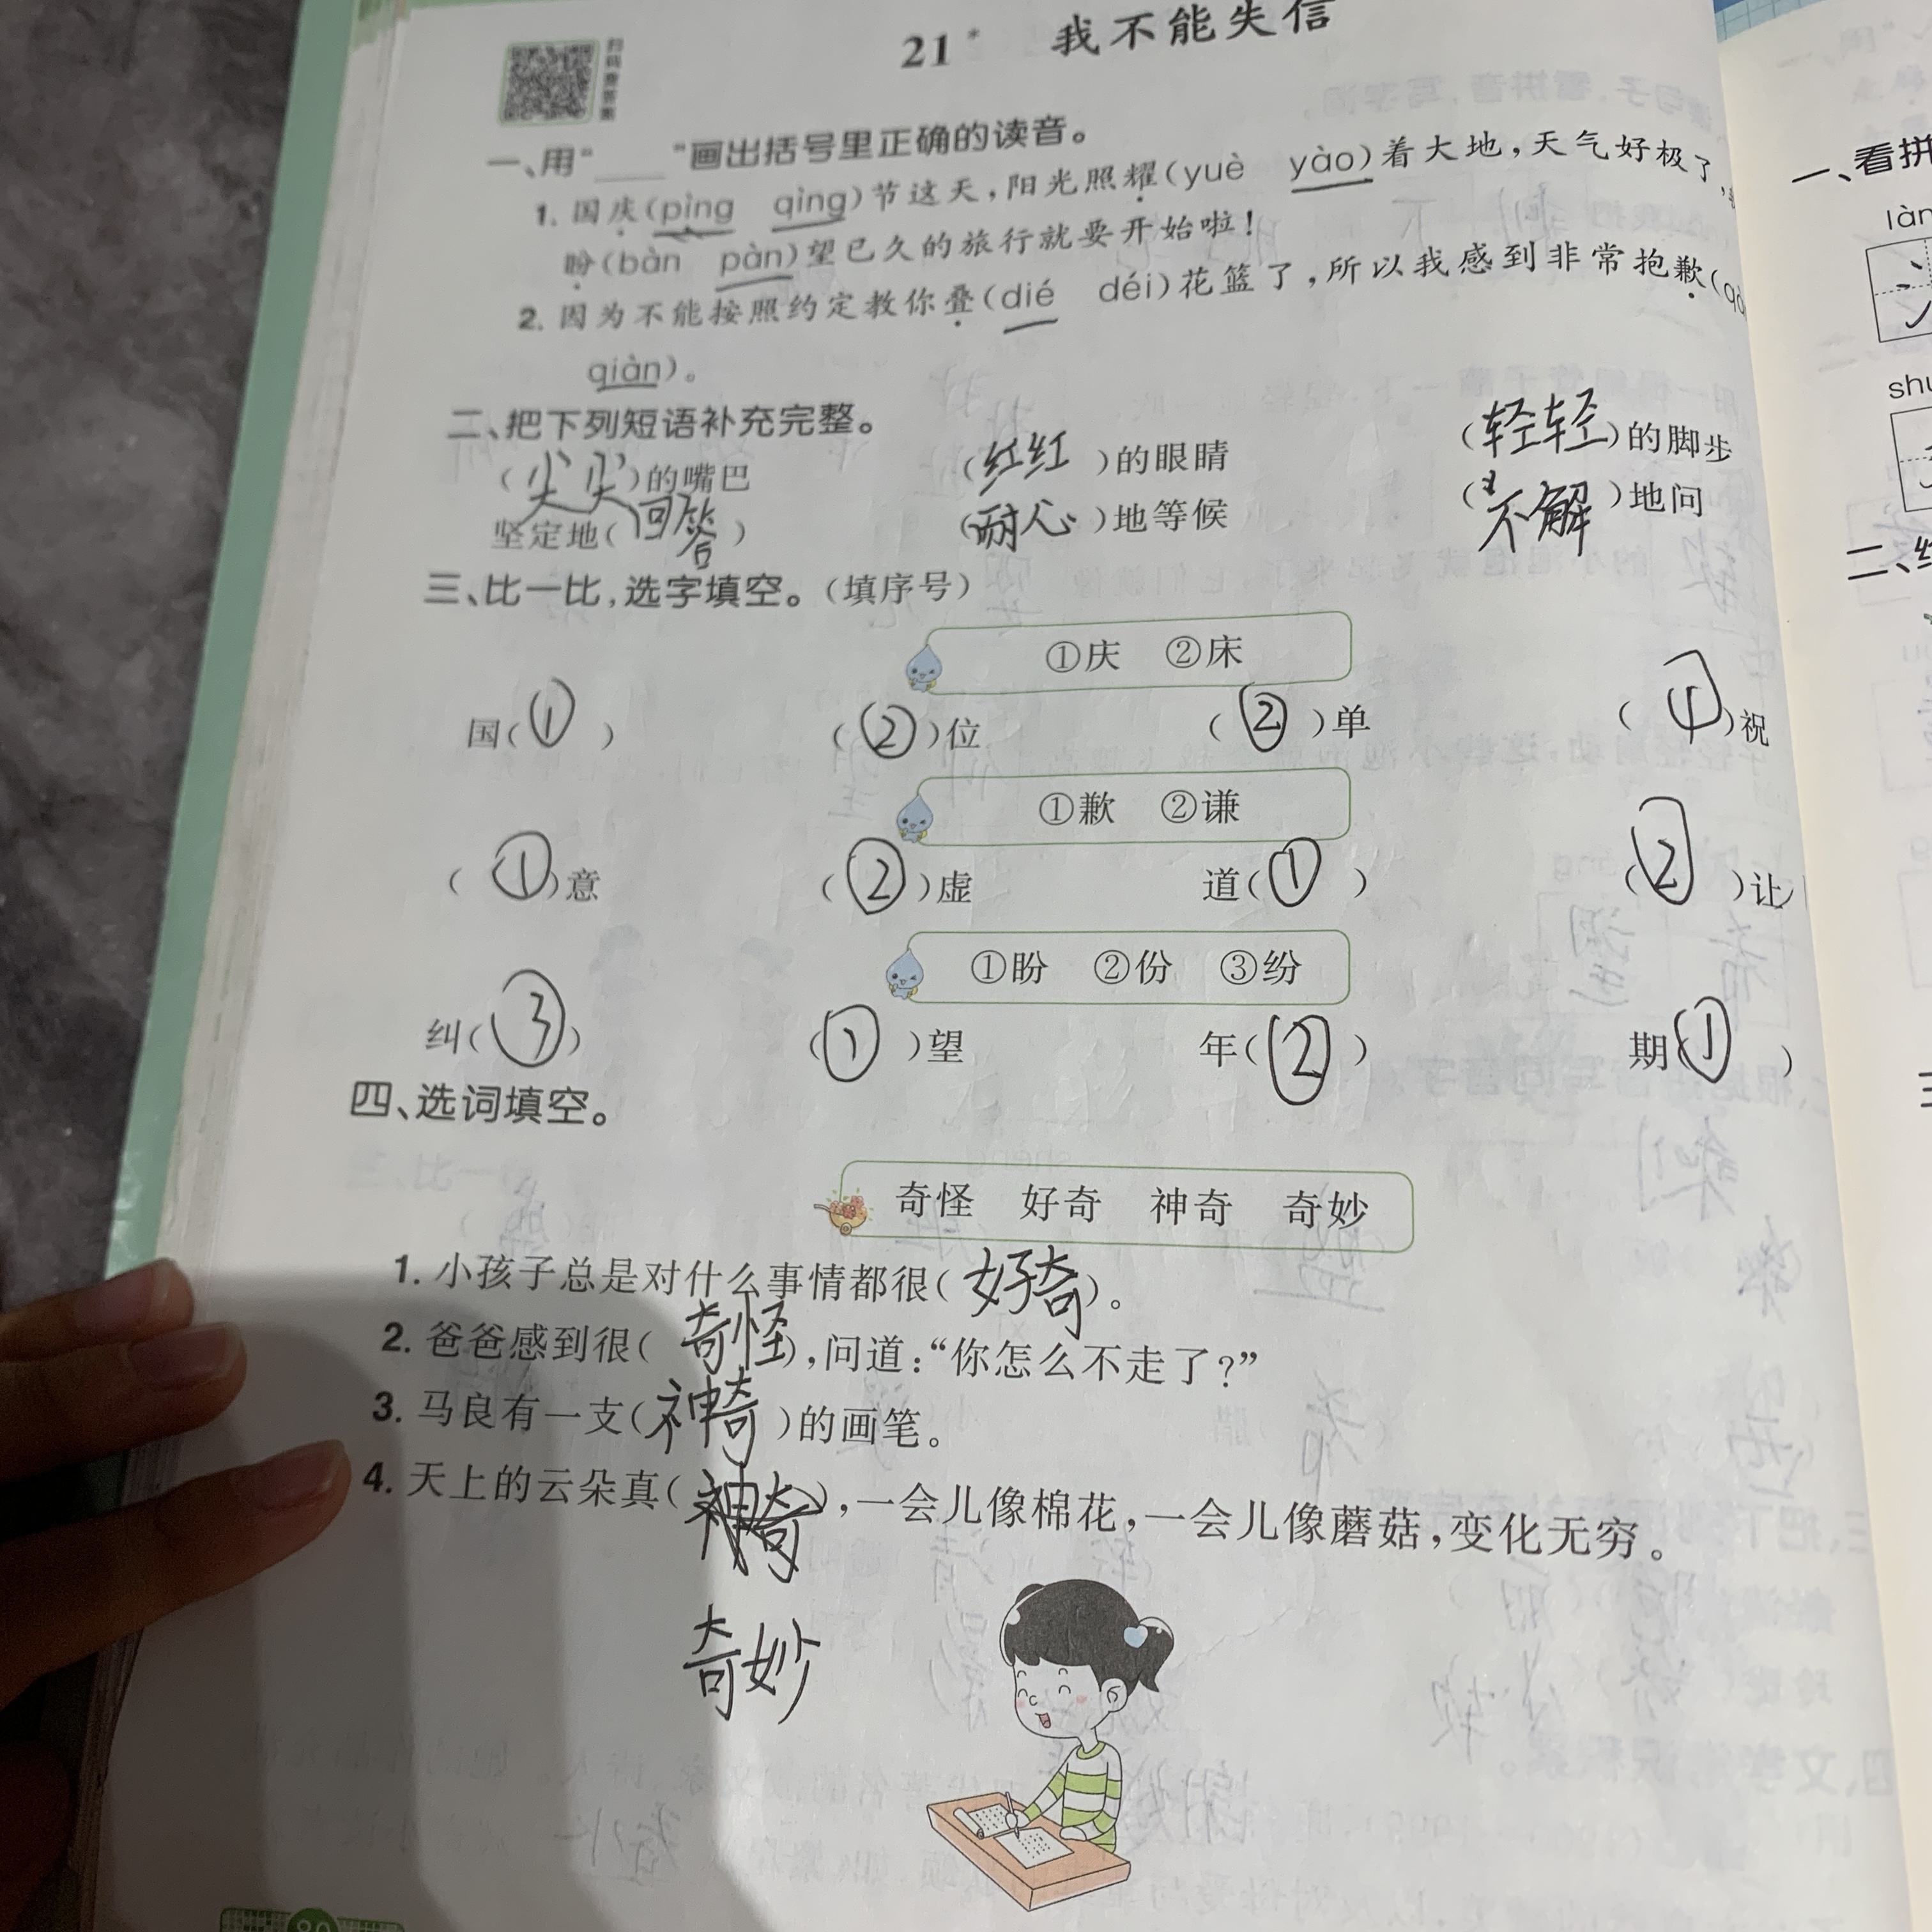 扫码查答案
21* 我不能失信
一、用“____”画出括号里正确的读音。
1. 国庆(pìng qìng)节这天,阳光照耀(yuè yào)着大地,天气好极了,
盼(bàn pàn)望已久的旅行就要开始啦!
2. 因为不能按照约定教你叠(dié déi)花篮了,所以我感到非常抱歉(
qiàn)。
二、把下列短语补充完整。
(尖尖)的嘴巴 (红红)的眼睛 (轻轻)的脚步
坚定地(回答) (耐心)地等候 (不解)地问
三、比一比,选字填空。(填序号)
①庆 ②床
国(①) (②)位 (②)单 ( )祝
①歉 ②谦
(①)意 (②)虚 道(①) (②)让
①盼 ②份 ③纷
纠(③) (①)望 年(②) 期(①)
四、选词填空。
奇怪 好奇 神奇 奇妙
1. 小孩子总是对什么事情都很(好奇)。
2. 爸爸感到很(奇怪),问道:“你怎么不走了?”
3. 马良有一支(神奇)的画笔。
4. 天上的云朵真(神奇),一会儿像棉花,一会儿像蘑菇,变化无穷。
奇妙
一、看拼
làn
shu
二、